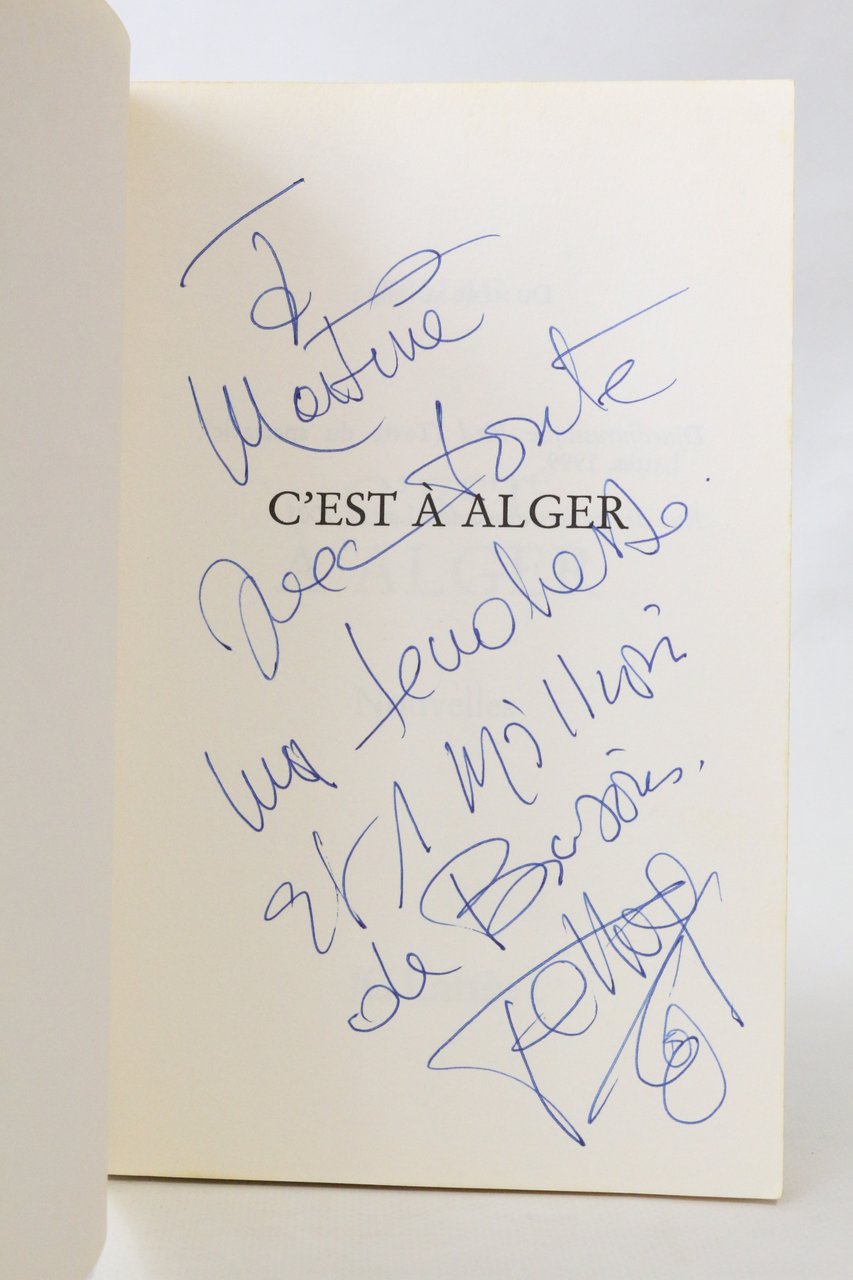 À
Martine
C'EST À ALGER
avec toute
ma tendresse.
et 1 million
de Bisous.
Fellag